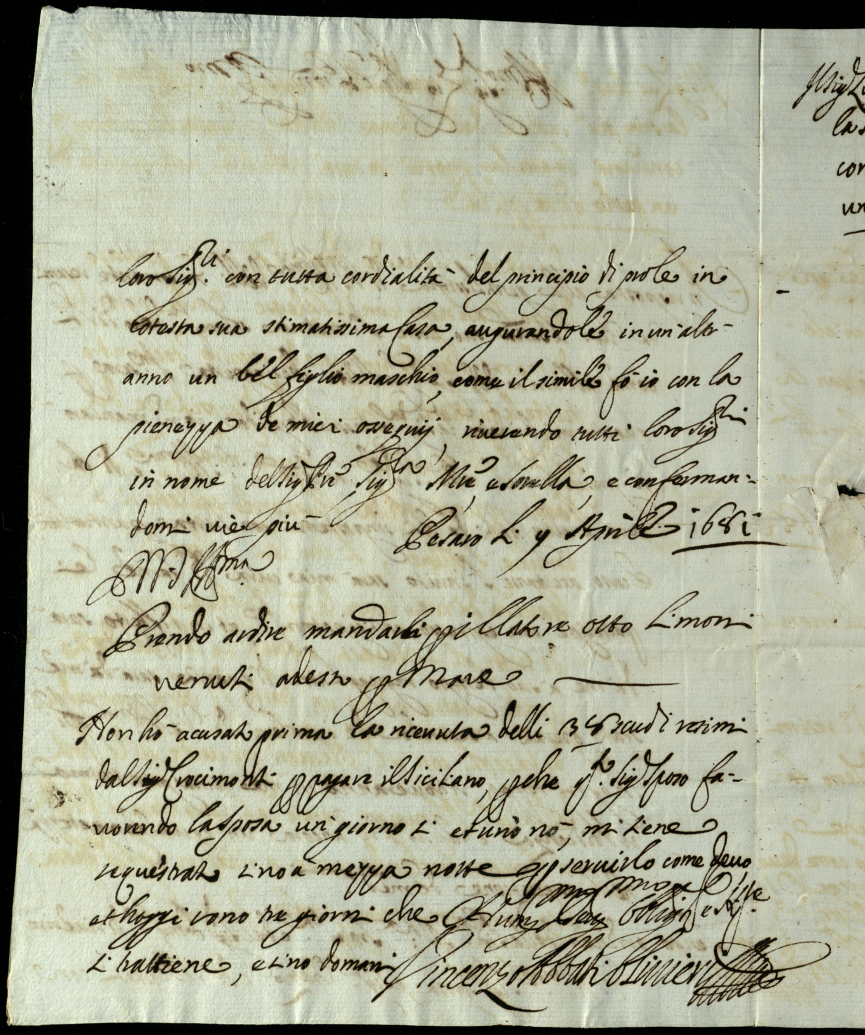 loro Sig.ri con tutta cordialità del principio di prole in
cotesta sua stimatissima Casa, augurandole in un'altr'
anno un bel figlio maschio, come il simile fò io con la
pienezza de miei ossequij, riverendo tutti loro Sig.ri
in nome del Sig. Sig.ra e sorella, e conferman-
domi vie più Pesaro li 9 Aprile 1681
Prendo ardire mandarli p il latore otto limoni
venuti adesso p Mare
Non hò acusato prima la ricevuta delli scudi
dal Sig. Crocimonti p pagare il Siciliano, p che Sig. Sposo fa-
vorendo la sposa un giorno si et uno nò, mi tiene
sequestrato sino a mezza notte p servirlo come devo
et hoggi sono tre giorni che
si trattiene, e sino domani Vincenzo Abbati Olivieri
Il Sig.
la
con
un